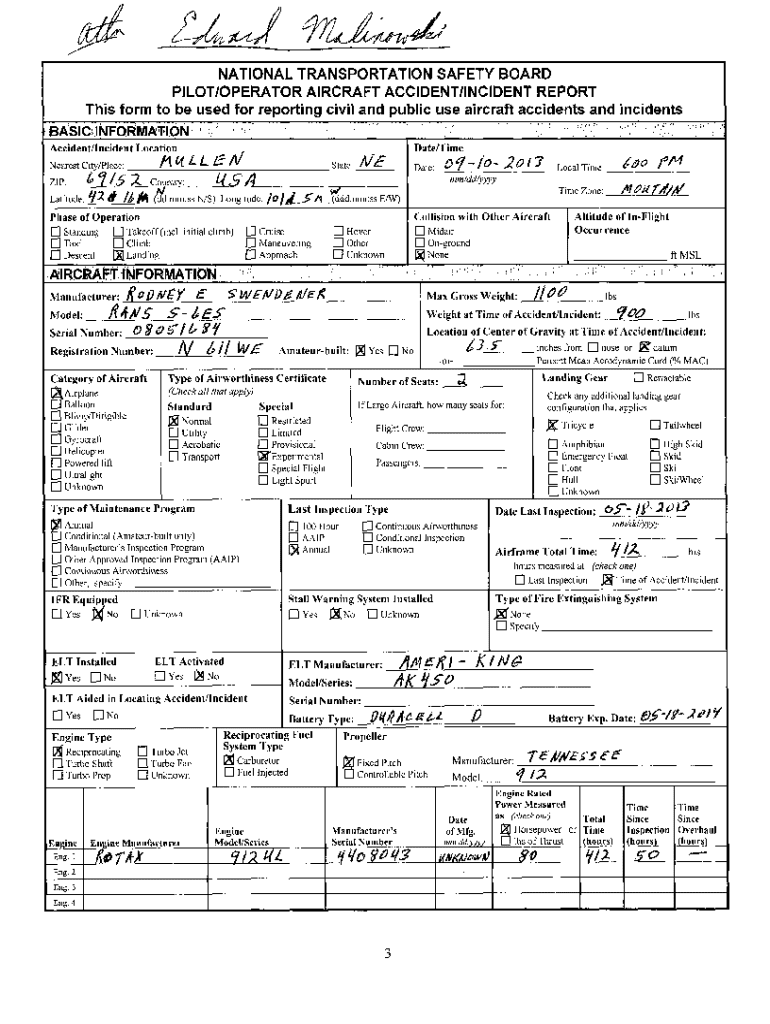 Attn Edward Malinowski
NATIONAL TRANSPORTATION SAFETY BOARD
PILOT/OPERATOR AIRCRAFT ACCIDENT/INCIDENT REPORT
This form to be used for reporting civil and public use aircraft accidents and incidents
BASIC INFORMATION
Accident/Incident Location
Nearest City/Place: MULLEN State: NE
ZIP: 69152 Country: USA
Latitude: (dd:mm:ss N/S) Longitude: (ddd:mm:ss E/W)
Date/Time
Date: 09-10-2013 Local Time: 600 PM
mm/dd/yyyy
Time Zone: MOUTAIN
Phase of Operation
Standing Takeoff (incl. initial climb) Cruise Hover
Taxi Climb Maneuvering Other
Descent Landing Approach Unknown
Collision with Other Aircraft
Midair
On-ground
None
Altitude of In-Flight
Occurrence
ft MSL
AIRCRAFT INFORMATION
Manufacturer: RODNEY E SWENDENER
Model: RANS S-6ES
Serial Number: 08051684
Registration Number: N 611WE Amateur-built: Yes No
Max Gross Weight: 1100 lbs
Weight at Time of Accident/Incident: 900 lbs
Location of Center of Gravity at Time of Accident/Incident:
63.5 inches from nose or datum
-or- Percent Mean Aerodynamic Cord (% MAC)
Category of Aircraft
Airplane
Balloon
Blimp/Dirigible
Glider
Gyrocraft
Helicopter
Powered lift
Ultralight
Unknown
Type of Airworthiness Certificate
(Check all that apply)
Standard Special
Normal Restricted
Utility Limited
Acrobatic Provisional
Transport Experimental
Special Flight
Light Sport
Number of Seats: 2
If Large Aircraft, how many seats for:
Flight Crew:
Cabin Crew:
Passengers:
Landing Gear Retractable
Check any additional landing gear
configuration that applies
Tricycle Tailwheel
Amphibian High Skid
Emergency Float Skid
Float Ski
Hull Ski/Wheel
Unknown
Type of Maintenance Program
Annual
Conditional (Amateur-built only)
Manufacturer's Inspection Program
Other Approved Inspection Program (AAIP)
Continuous Airworthiness
Other, specify
Last Inspection Type
100 Hour Continuous Airworthiness
AAIP Conditional Inspection
Annual Unknown
Date Last Inspection: 05-18-2013
mm/dd/yyyy
Airframe Total Time: 412 hrs
hours measured at (check one)
Last Inspection Time of Accident/Incident
IFR Equipped
Yes No Unknown
Stall Warning System Installed
Yes No Unknown
Type of Fire Extinguishing System
None
Specify
ELT Installed ELT Activated
Yes No Yes No
ELT Aided in Locating Accident/Incident
Yes No
ELT Manufacturer: AMERI-KING
Model/Series: AK 450
Serial Number:
Battery Type: DURACELL D Battery Exp. Date: 05-18-2014
Engine Type
Reciprocating Turbo Jet
Turbo Shaft Turbo Fan
Turbo Prop Unknown
Reciprocating Fuel
System Type
Carburetor
Fuel Injected
Propeller
Fixed Pitch
Controllable Pitch
Manufacturer: TENNESSEE
Model: 912
Engine Engine Manufacturer
Engine
Model/Series
Manufacturer's
Serial Number
Date
of Mfg.
mm/dd/yyyy
Engine Rated
Power Measured
as (check one)
Horsepower or
lbs of Thrust
Total
Time
(hours)
Time
Since
Inspection
(hours)
Time
Since
Overhaul
(hours)
Eng. 1 ROTAX 912UL 4408043 UNKNOWN 80 412 50 —
Eng. 2
Eng. 3
Eng. 4
3